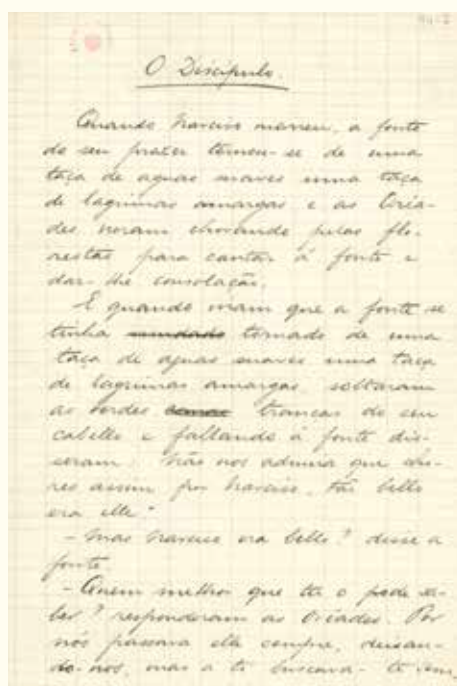 O Discipulo.
Quando Narciso morreu, a fonte
do seu prazer tornou-se de uma
taça de aguas suaves uma taça
de lagrimas amargas e as Oréa-
des vieram chorando pelas flo-
restas para cantar á fonte e
dar-lhe consolação.
E quando viram que a fonte se
tinha mudado tornado de uma
taça de aguas suaves uma taça
de lagrimas amargas, soltaram
as verdes tranças do seu
cabello e fallando á fonte dis-
seram: Não nos admira que cho-
res assim por Narciso, tão bello
era elle."
- Mas Narciso era bello? disse a
fonte.
- Quem melhor que tu o pode sa-
ber? responderam as Oréades. Por
nós passava elle sempre, deixan-
do-nos, mas a ti buscava-te, e em